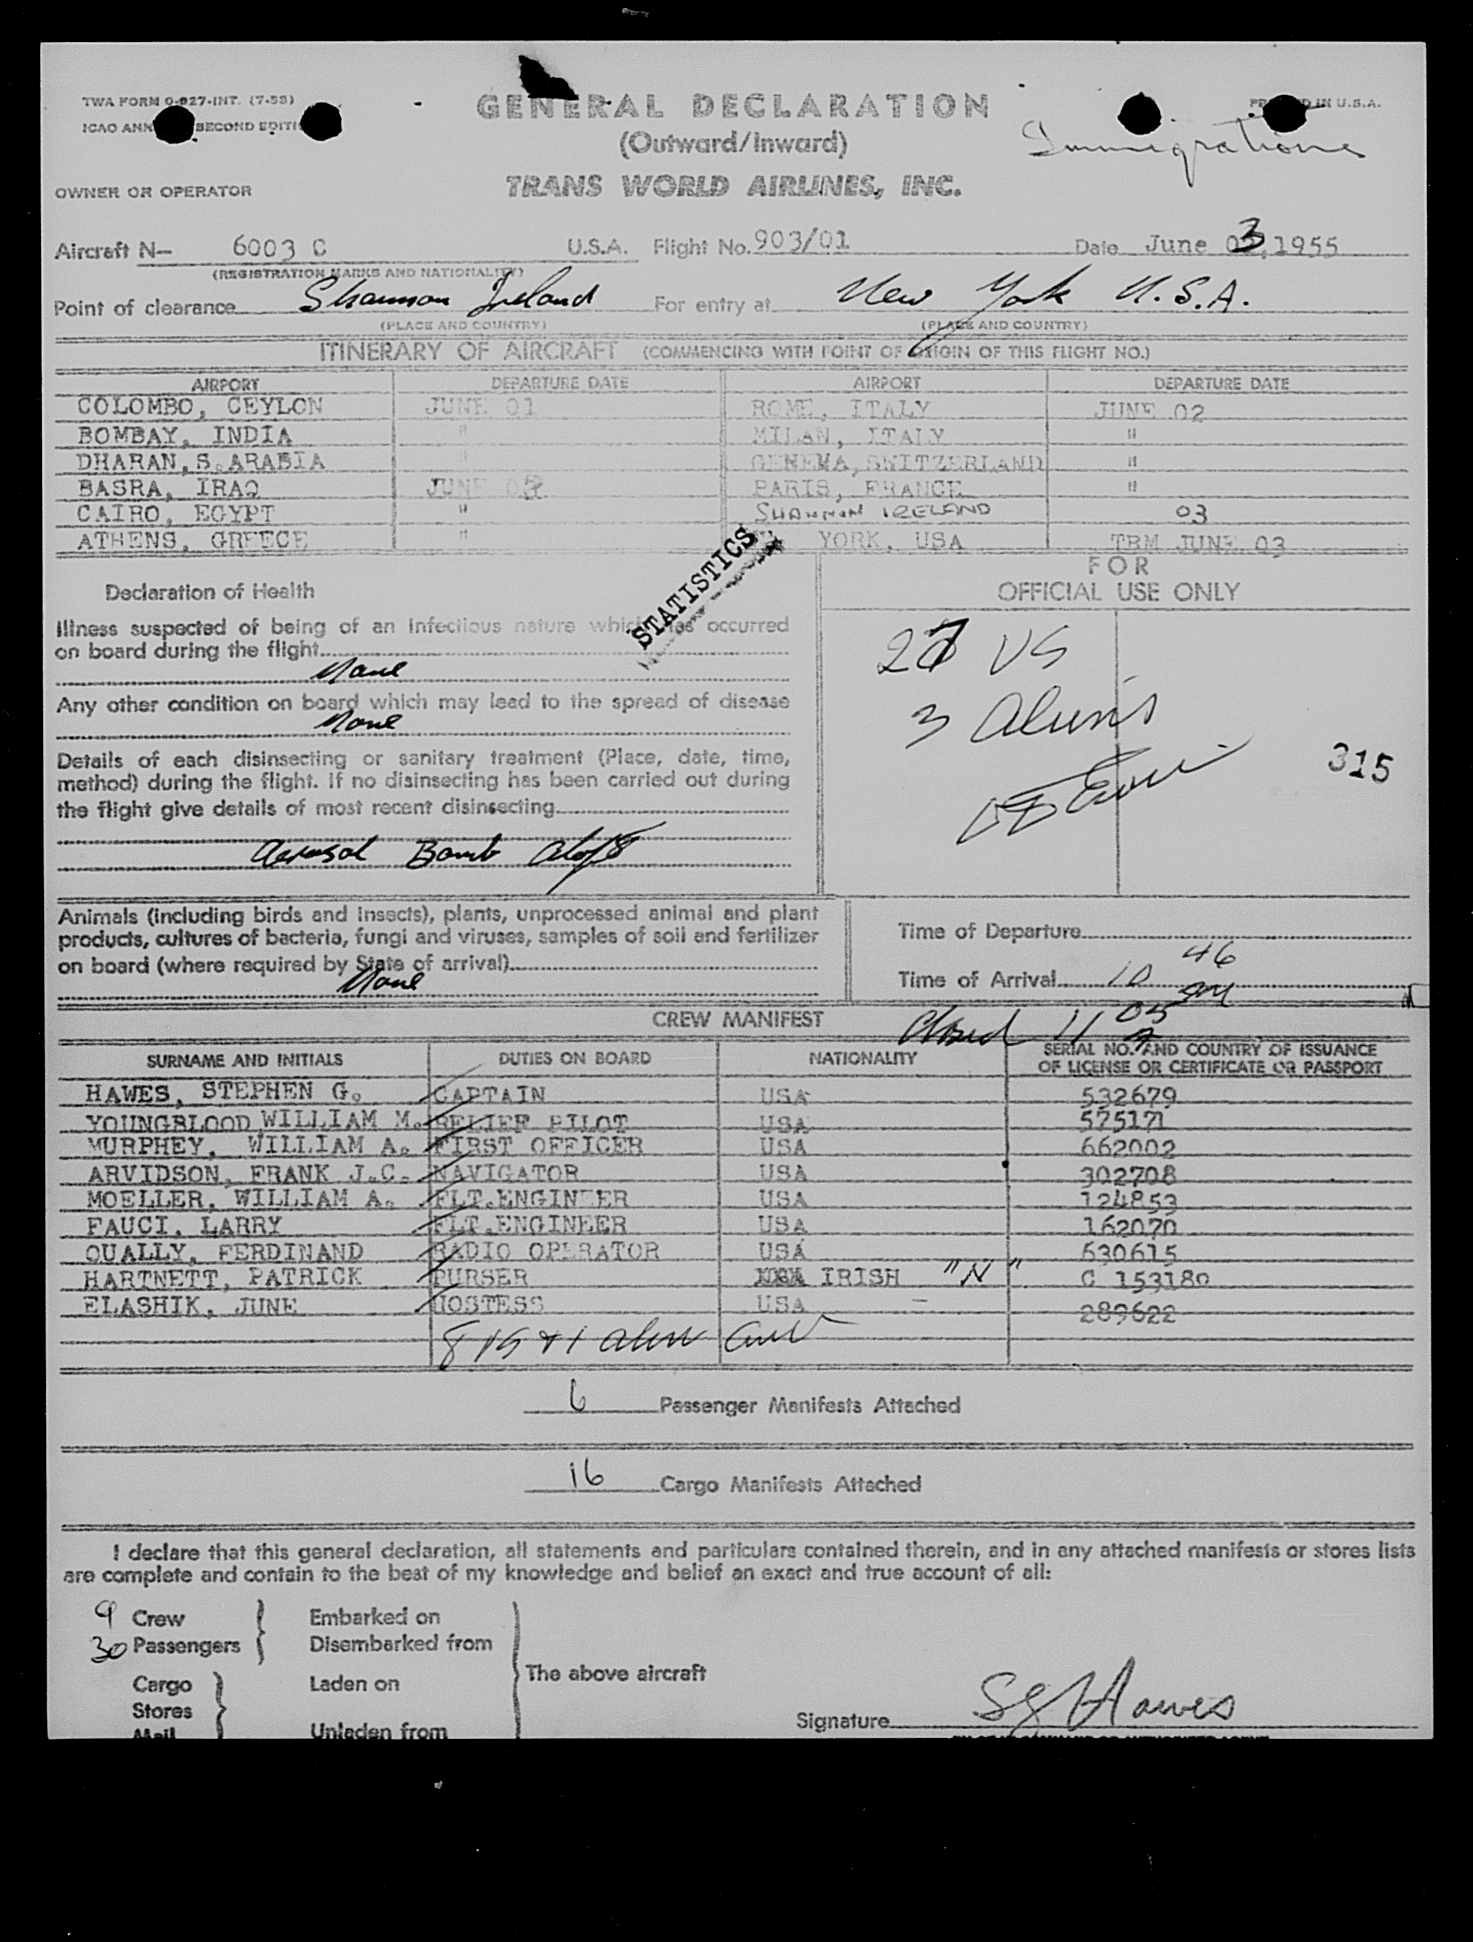 TWA FORM O-827-INT. (7-53)
GENERAL DECLARATION
IN U.S.A.
ICAO SECOND
(Outward/Inward)
Immigrations
OWNER OR OPERATOR
TRANS WORLD AIRLINES, INC.
Aircraft N— 6003 C U.S.A. Flight No. 903/01 Date June 03, 1955
(REGISTRATION MARKS AND NATIONALITY)
Point of clearance Shannon Ireland For entry at New York U.S.A.
(PLACE AND COUNTRY) (PLACE AND COUNTRY)
ITINERARY OF AIRCRAFT (COMMENCING WITH POINT OF ORIGIN OF THIS FLIGHT NO.)
AIRPORT DEPARTURE DATE AIRPORT DEPARTURE DATE
COLOMBO, CEYLON JUNE 01 ROME, ITALY JUNE 02
BOMBAY, INDIA " MILAN, ITALY "
DHARAN, S. ARABIA " GENEVA, SWITZERLAND "
BASRA, IRAQ JUNE 02 PARIS, FRANCE "
CAIRO, EGYPT " SHANNON IRELAND 03
ATHENS, GREECE " YORK, USA TRM JUNE 03
STATISTICS
Declaration of Health
FOR
OFFICIAL USE ONLY
Illness suspected of being of an infectious nature which has occurred
on board during the flight
None
27 US
Any other condition on board which may lead to the spread of disease
None
3 Aliens
Details of each disinsecting or sanitary treatment (Place, date, time,
method) during the flight. If no disinsecting has been carried out during
the flight give details of most recent disinsecting
315
Aerosol Bomb aloft
Animals (including birds and insects), plants, unprocessed animal and plant
products, cultures of bacteria, fungi and viruses, samples of soil and fertilizer
on board (where required by State of arrival)
None
Time of Departure
Time of Arrival 10 46 am
CREW MANIFEST
Closed 11 05 a
SURNAME AND INITIALS DUTIES ON BOARD NATIONALITY SERIAL NO. AND COUNTRY OF ISSUANCE
OF LICENSE OR CERTIFICATE OR PASSPORT
HAWES, STEPHEN G. CAPTAIN USA 532679
YOUNGBLOOD WILLIAM M. RELIEF PILOT USA 575171
MURPHEY, WILLIAM A. FIRST OFFICER USA 662002
ARVIDSON, FRANK J.C. NAVIGATOR USA 302708
MOELLER, WILLIAM A. FLT.ENGINEER USA 124853
FAUCI, LARRY FLT.ENGINEER USA 162070
QUALLY, FERDINAND RADIO OPERATOR USA 630615
HARTNETT, PATRICK PURSER IRISH "N" C 153180
ELASHIK, JUNE HOSTESS USA – 289622
8 US + 1 alien crew
6 Passenger Manifests Attached
16 Cargo Manifests Attached
I declare that this general declaration, all statements and particulars contained therein, and in any attached manifests or stores lists
are complete and contain to the best of my knowledge and belief an exact and true account of all:
9 Crew Embarked on
30 Passengers Disembarked from
The above aircraft
Cargo Laden on
Stores
Mail Unladen from
Signature SG Hawes